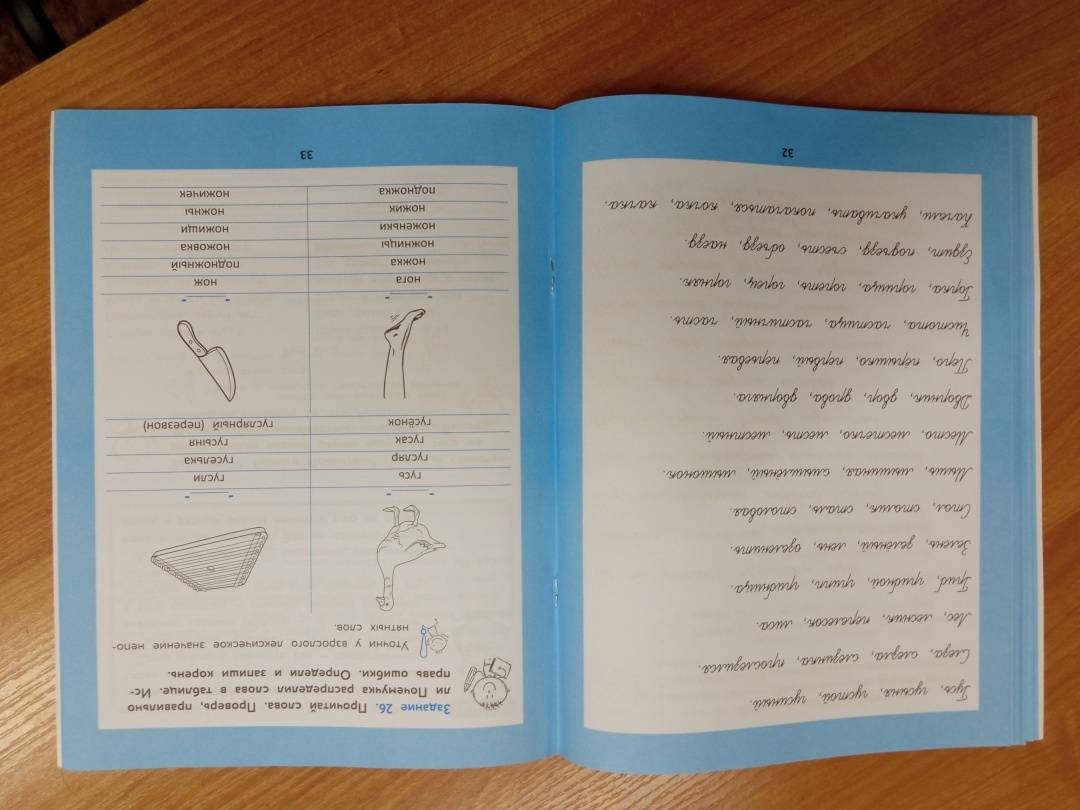 Гусь, гусыня, густой, гусиный.
Слеза, слезла, слезинка, прослезился.
Лес, лесник, перелесок, лиса.
Гриб, грибной, грипп, грибница.
Зелень, зелёный, лень, озеленить.
Стол, столик, сталь, столовая.
Мышь, мышиная, смышлёный, мышонок.
Место, местечко, месть, местный.
Дворник, двор, дрова, дворняга.
Перо, пёрышко, первый, перьевая.
Чистота, частица, частичный, часть.
Горка, горница, гореть, горец, горняк.
Ездит, подъезд, съесть, объезд, наезд.
Качели, укачивать, покачаться, кочка, качка.
32
Задание 26. Прочитай слова. Проверь, правильно
ли Почемучка распределил слова в таблице. Ис-
правь ошибки. Определи и запиши корень.
Уточни у взрослого лексическое значение непо-
нятных слов.
гусь гусли
гусляр гуселька
гусак гусыня
гусёнок гуслярный (перезвон)
нога нож
ножка подножный
ножницы ножовка
ноженьки ножищи
ножик ножны
подножка ножичек
33